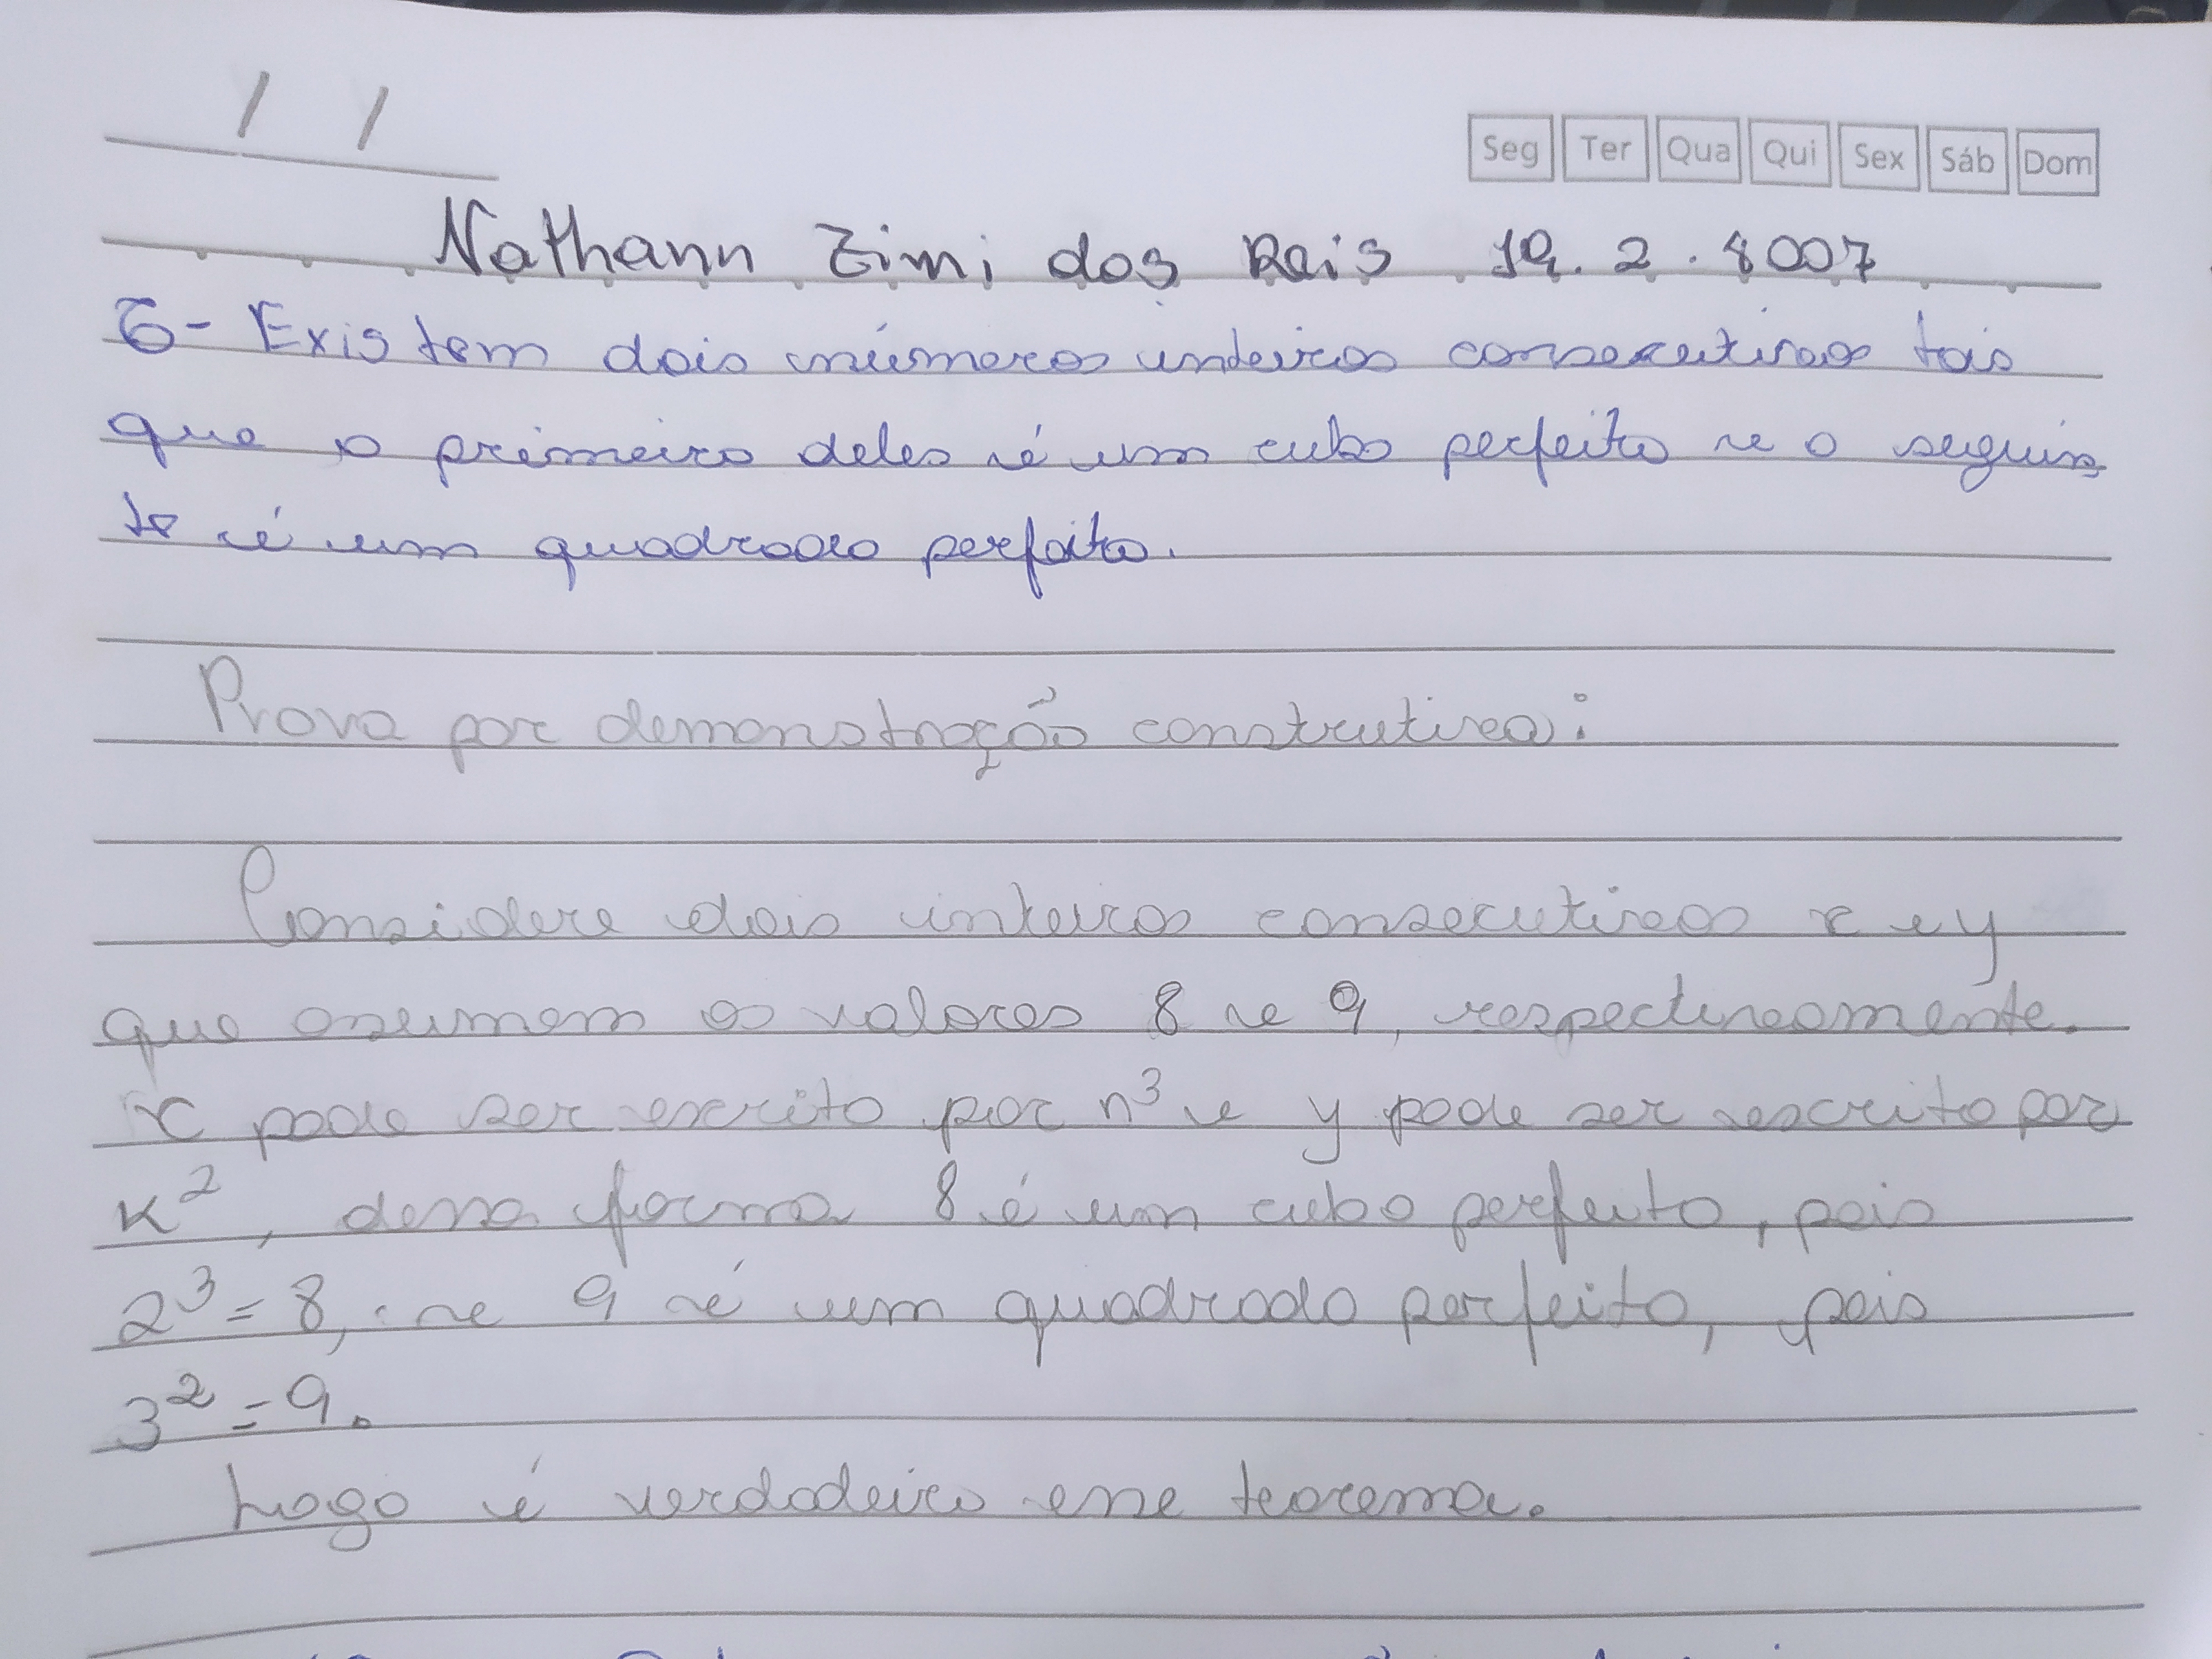 / /
Seg Ter Qua Qui Sex Sáb Dom
Nathann Zini dos Reis 19.2.4007
6- Existem dois números inteiros consecutivos tais
que o primeiro deles é um cubo perfeito e o seguin
te é um quadrado perfeito.
Prova por demonstração construtiva:
Considere dois inteiros consecutivos x e y
que assumem os valores 8 e 9, respectivamente.
x pode ser escrito por n³ e y pode ser escrito por
k², dessa forma 8 é um cubo perfeito, pois
2³ = 8, e 9 é um quadrado perfeito, pois
3² = 9.
Logo é verdadeiro esse teorema.